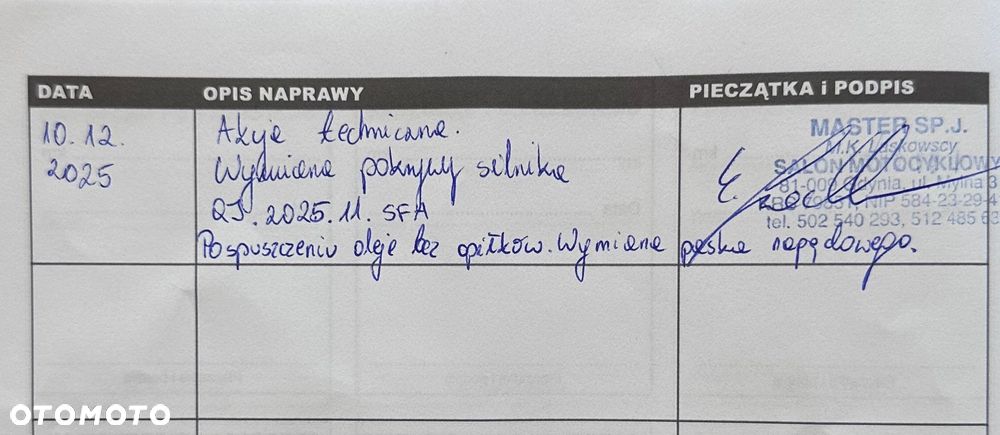 DATA OPIS NAPRAWY PIECZĄTKA i PODPIS
10.12. Akcja techniczna.
2025 Wymiana pokrywy silnika
QJ.2025.11.SFA
Po spuszczeniu oleju bez opiłków. Wymiana paska napędowego.
MASTER SP.J.
M.K. Laskowscy
SALON MOTOCYKLOWY
81-009 Gdynia, ul. Mylna 3
NIP 584-23-29-4
tel. 502 540 293, 512 485 63
OTOMOTO